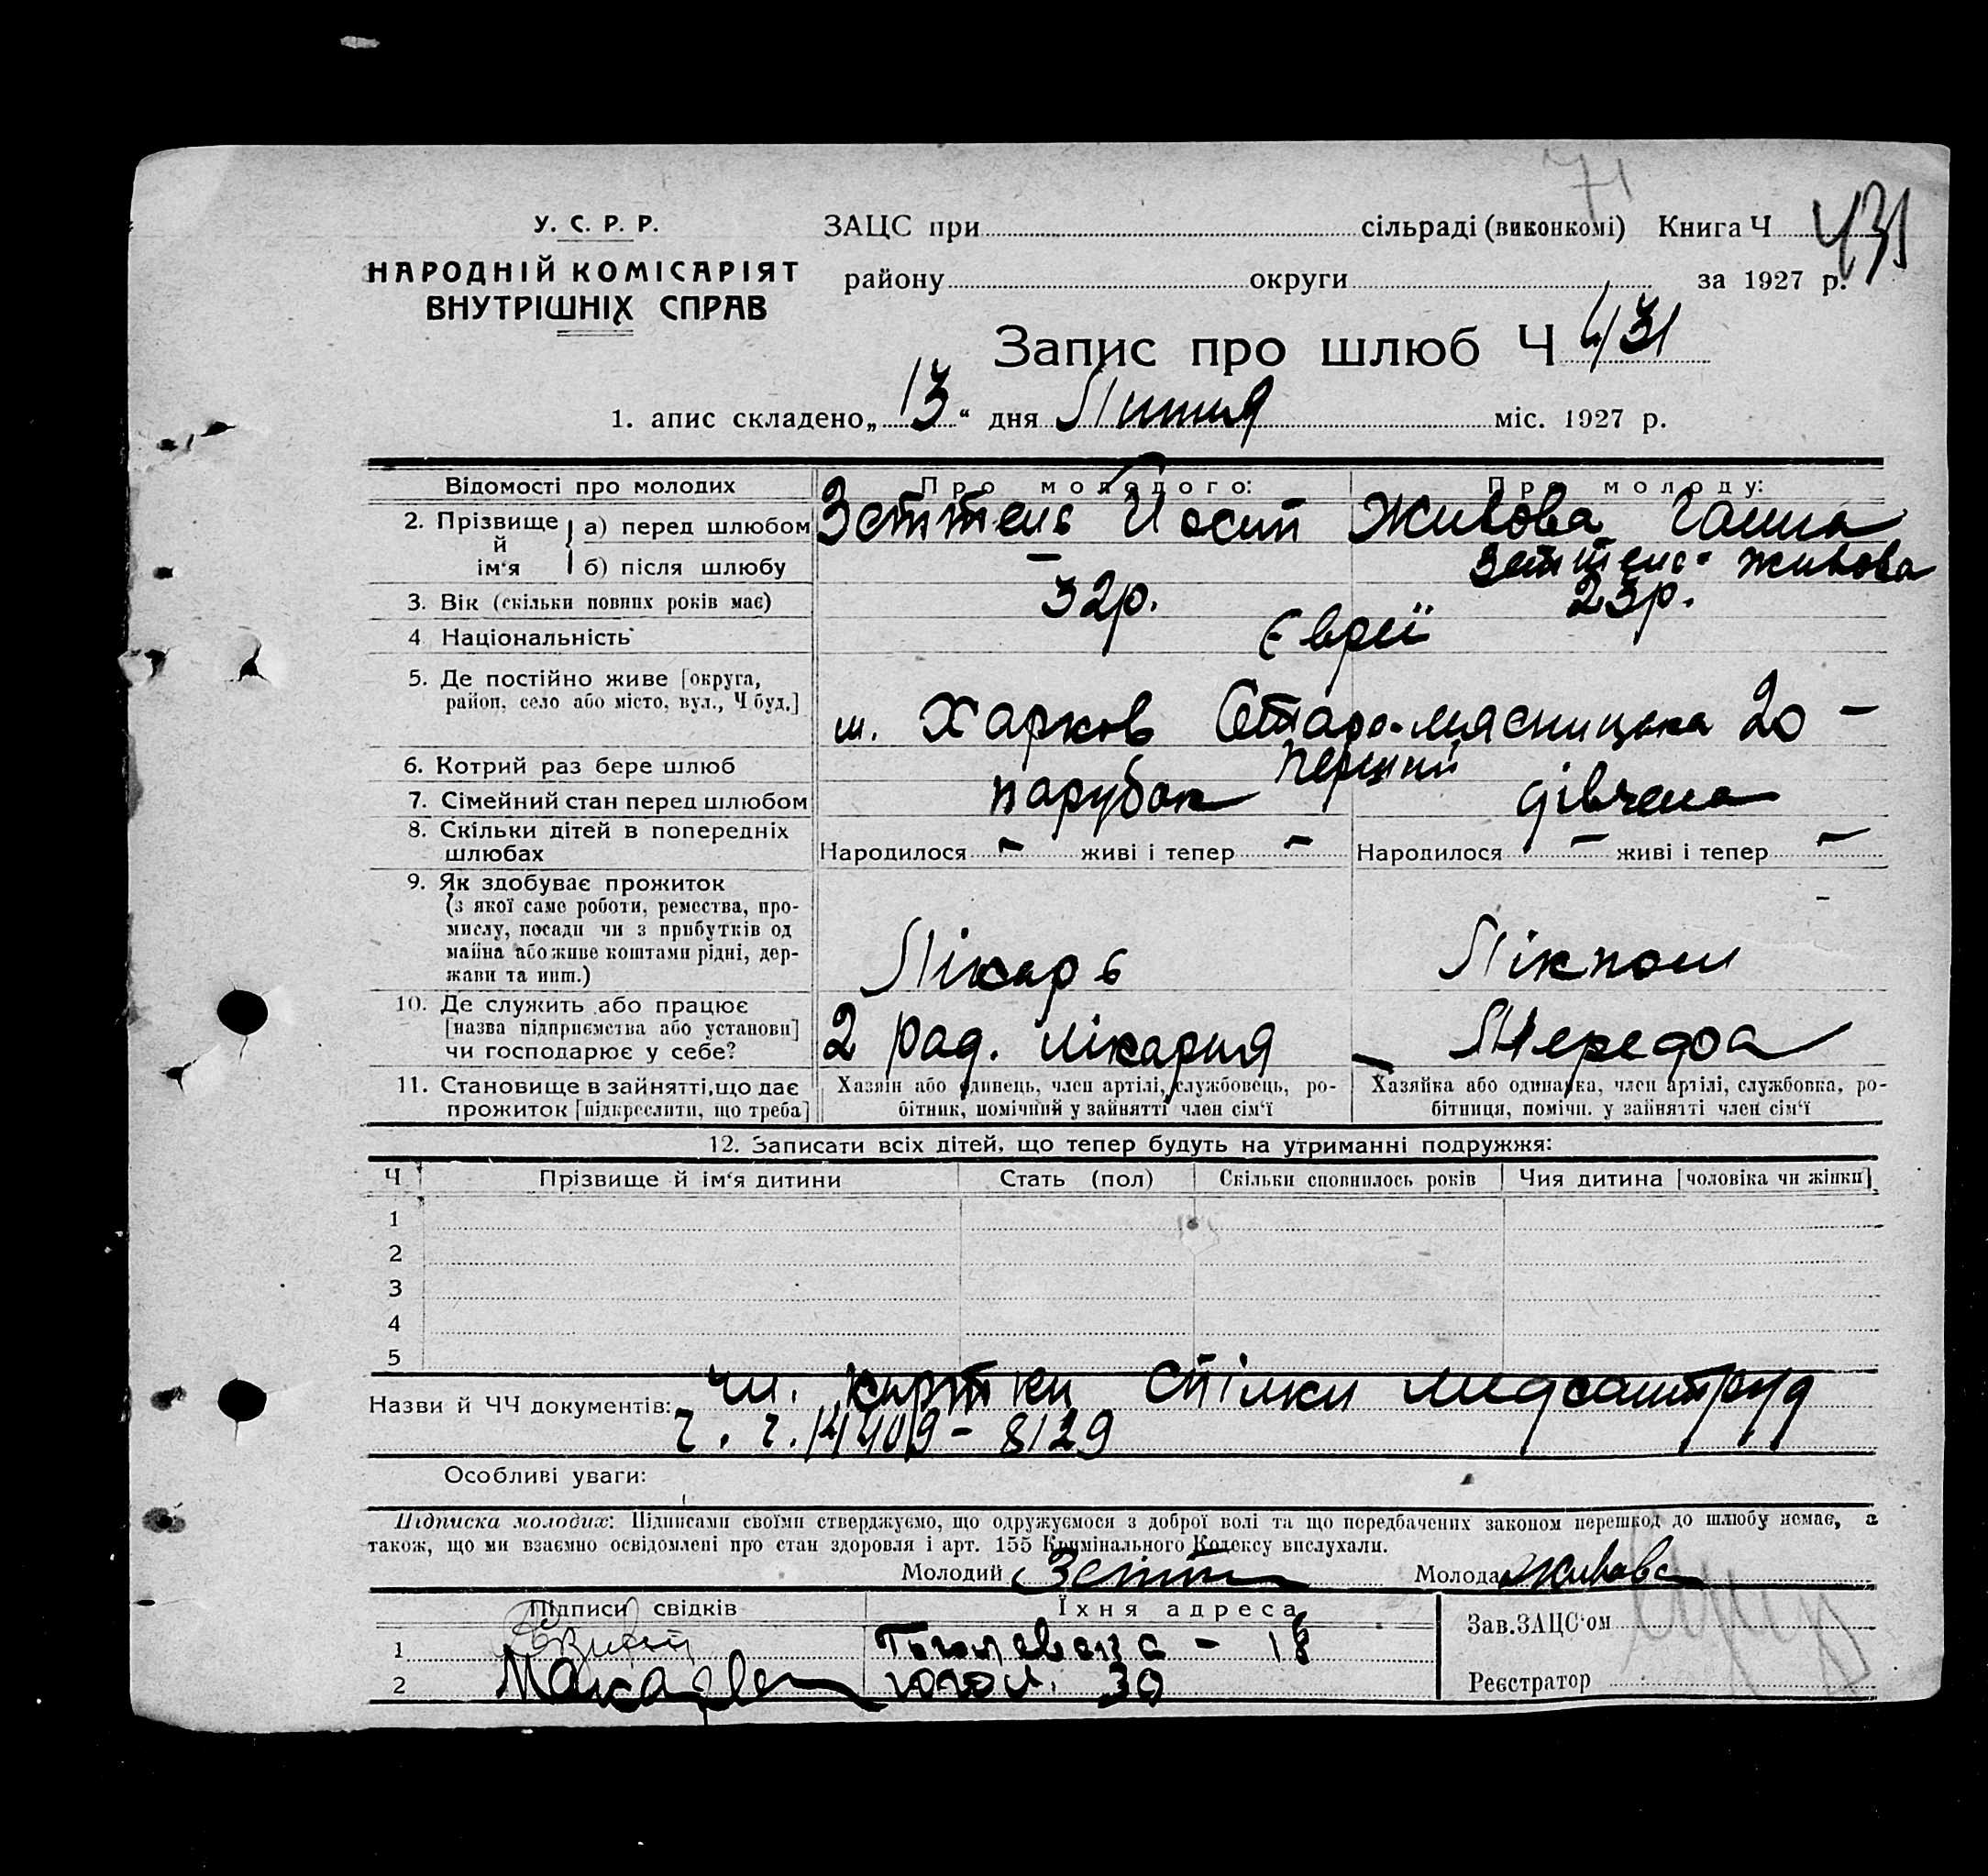 71
У. С. Р. Р.
НАРОДНІЙ КОМІСАРІЯТ
ВНУТРІШНІХ СПРАВ
ЗАЦС при сільраді (виконкомі) Книга Ч 431
району округи за 1927 р.
Запис про шлюб Ч 431
1. апис складено „13“ дня Липня міс. 1927 р.
Відомості про молодих Про молодого: Про молоду:
2. Прізвище й ім‘я а) перед шлюбом Зеттель Йосип Живова Ганна
б) після шлюбу — Зеттель-Живова
3. Вік (скільки повних років має) 32р. 23р.
4 Національність Євреї
5. Де постійно живе [округа,
район, село або місто, вул., Ч буд.] м. Харков Старо-мясницька 20 —
6. Котрий раз бере шлюб перший
7. Сімейний стан перед шлюбом парубок дівчена
8. Скільки дітей в попередніх
шлюбах Народилося — живі і тепер — Народилося — живі і тепер —
9. Як здобуває прожиток
(з якої саме роботи, ремества, про-
мислу, посади чи з прибутків од
майна або живе коштами рідні, дер-
жави та инш.) Лікарь Лікпом
10. Де служить або працює
[назва підприємства або установи]
чи господарює у себе? 2 рад. лікарня —
11. Становище в зайнятті, що дає
прожиток [підкреслити, що треба]
Хазяїн або одинець, член артілі, службовець, ро-
бітник, помічний у зайнятті член сім‘ї
Хазяйка або одиначка, член артілі, службовка, ро-
бітниця, помічн. у зайнятті член сім‘ї
12. Записати всіх дітей, що тепер будуть на утриманні подружжя:
Ч Прізвище й ім‘я дитини Стать (пол) Скільки сповнилось років Чия дитина [чоловіка чи жінки]
1
2
3
4
5
Назви й ЧЧ документів: чл. картки Спілки медсантруд
ч. ч. 14409 - 8129
Особливі уваги:
Підписка молодих: Підписами своїми стверджуємо, що одружуємося з доброї волі та що передбачених законом перешкод до шлюбу немає, а
також, що ми взаємно освідомлені про стан здоровля і арт. 155 Кримінального Кодексу вислухали.
Молодий Молода Живова
Підписи свідків Їхня адреса
1 18
2 Гогол. 30
Зав. ЗАЦС‘ом
Реєстратор